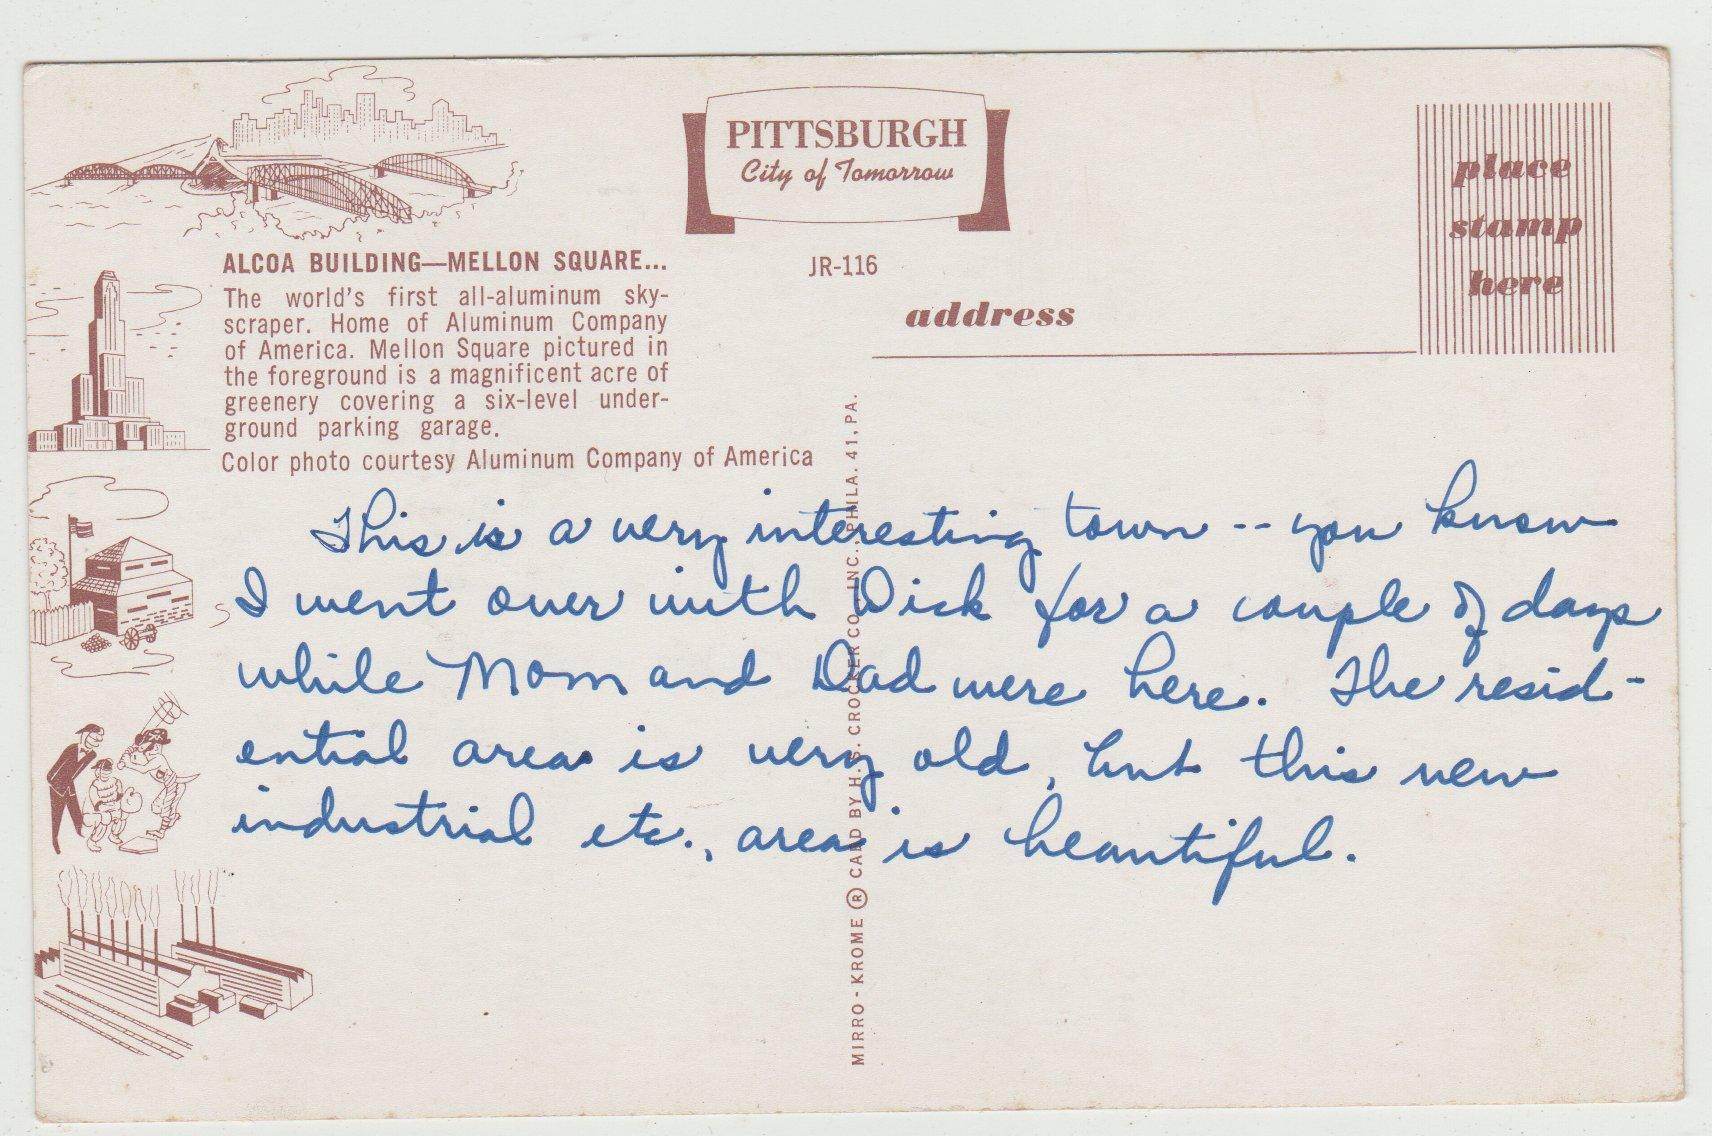 PITTSBURGH
City of Tomorrow
place
stamp
here
ALCOA BUILDING—MELLON SQUARE...
JR-116
The world's first all-aluminum sky-
scraper. Home of Aluminum Company
of America. Mellon Square pictured in
the foreground is a magnificent acre of
greenery covering a six-level under-
ground parking garage.
Color photo courtesy Aluminum Company of America
address
This is a very interesting town -- you know
I went over with Dick for a couple of days
while Mom and Dad were here. The resid-
ential area is very old, but this new
industrial etc., area is beautiful.
MIRRO-KROME ® CARD BY H.S. CROCKER CO., INC., PHILA. 41, PA.